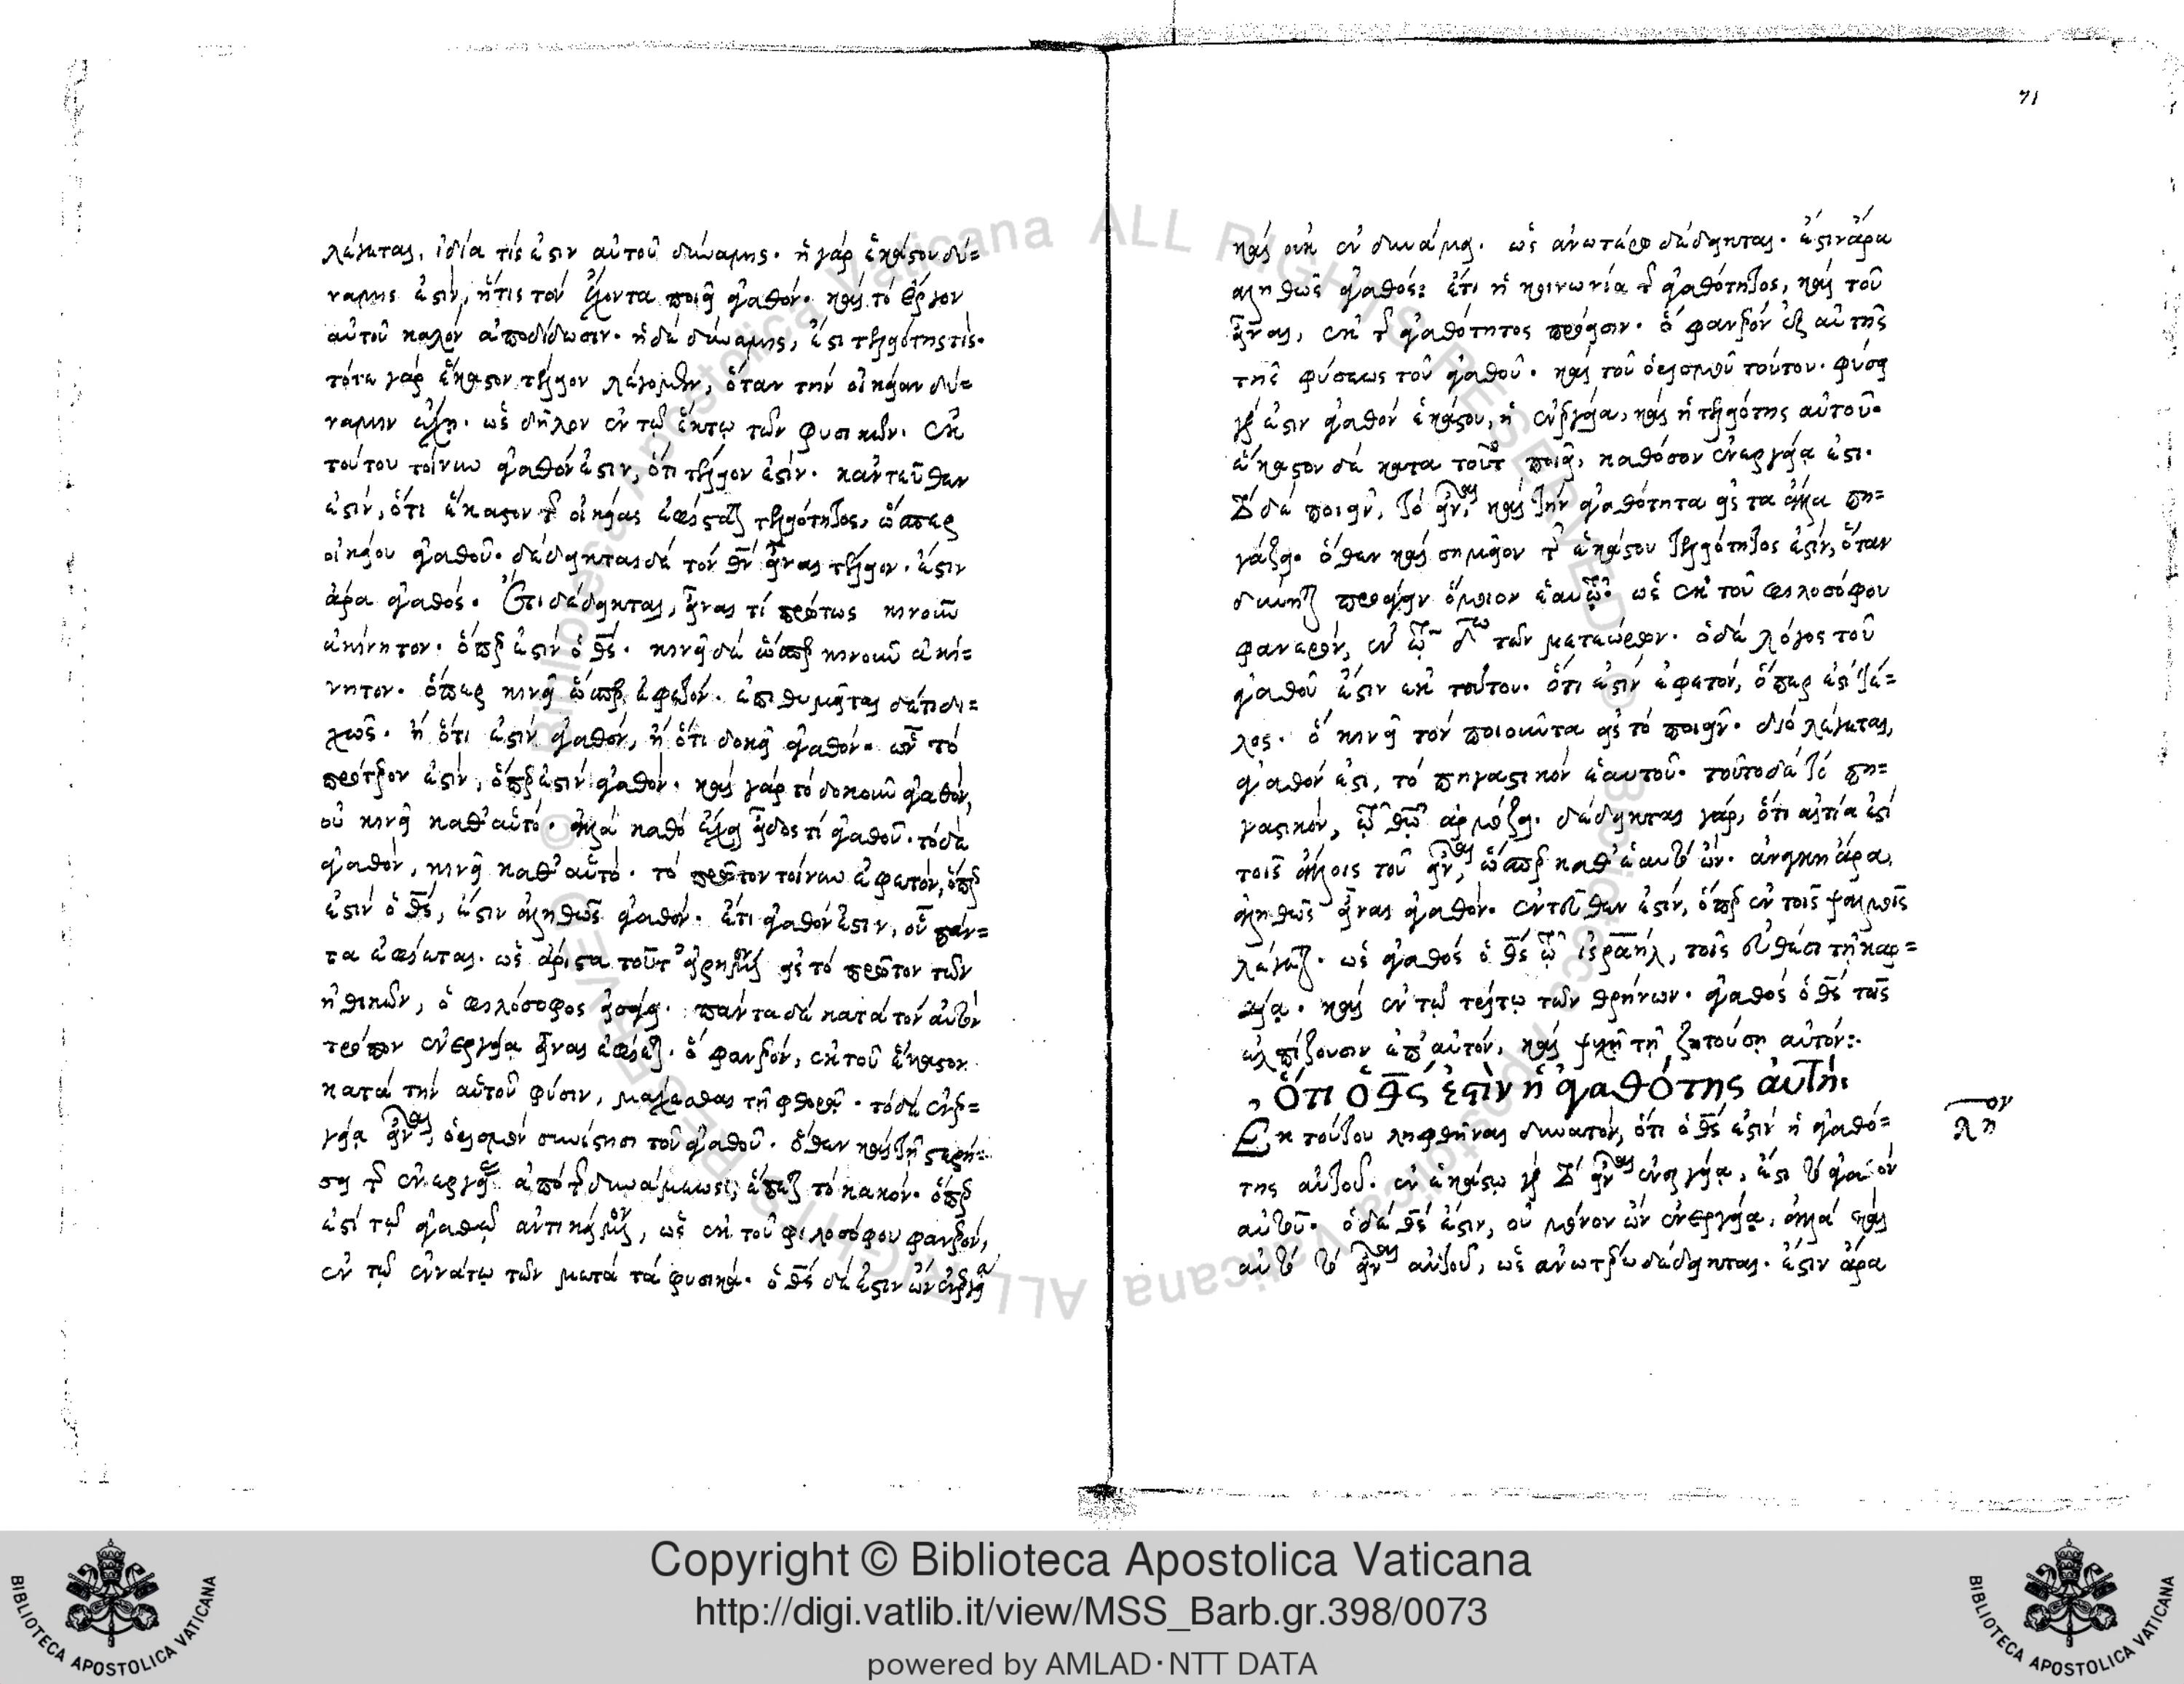 λέγεται, ἰδία τίς ἐστιν αὐτοῦ δύναμις. ἡ γάρ ἑκάστου δύ=
ναμις ἐστίν, ἥτις τόν ἔχοντα ποιεῖ ἀγαθόν. καί τό ἔργον
αὐτοῦ καλόν ἀποδίδωσιν. ἡ δέ δύναμις, ἐστι τελειότης τίς.
τότε γάρ ἕκαστον τέλειον λέγομεν, ὅταν τήν οἰκείαν δύ=
ναμιν ἔχῃ. ὡς δῆλον ἐν τῷ ἕκτῳ τῶν φυσικῶν. ἐκ
τούτου τοίνυν ἀγαθόν ἐστιν, ὅτι τέλειον ἐστίν. καντεῦθεν
ἐστίν, ὅτι ἕκαστον τῆς οἰκείας ἐφίεται τελειότητος, ὥσπερ
οἰκείου ἀγαθοῦ. δέδεικται δέ τόν θν εἶναι τέλειον. ἐστιν
ἄρα ἀγαθός. Ἔτι δέδεικται, εἶναι τί πρώτως κινοῦν
ἀκίνητον. ὅπερ ἐστίν ὁ θς. κινεῖ δέ ὥσπερ κινοῦν ἀκί=
νητον. ὅπερ κινεῖ ὥσπερ ἐφετόν. ἐπιθυμεῖται δέ τι δι=
χῶς. ἤ ὅτι ἐστίν ἀγαθόν, ἤ ὅτι δοκεῖ ἀγαθόν. ὧν τό
πρότερον ἐστίν, ὅπερ ἐστίν ἀγαθόν. καί γάρ τό δοκοῦν ἀγαθόν,
οὐ κινεῖ καθ' αὑτό. ἀλλά καθό ἔχει εἶδος τί ἀγαθοῦ. τό δέ
ἀγαθόν, κινεῖ καθ' αὑτό. τό πρῶτον τοίνυν ἐφετόν, ὅπερ
ἐστίν ὁ θς, ἐστιν ἀληθῶς ἀγαθόν. ἔτι ἀγαθόν ἐστιν, οὗ πάν=
τα ἐφίεται. ὡς ἄριστα τοῦτ' εἰρημένον εἰς τό πρῶτον τῶν
ἠθικῶν, ὁ φιλόσοφος εἰσάγει. πάντα δέ κατά τόν αὐτόν
τρόπον ἐνεργείᾳ εἶναι ἐφίεται. ὅ φανερόν, ἐκ τοῦ ἕκαστον
κατά τήν αὐτοῦ φύσιν, μάχεσθαι τῇ φθορᾷ. τό δέ ἐνερ=
γείᾳ εἶναι, ὁρισμόν συνίστησι τοῦ ἀγαθοῦ. ὅθεν καί τῇ στερή=
σει τῆς ἐνεργείας ἀπό τῆς δυνάμεως, ἕπεται τό κακόν. ὅπερ
ἐστί τῷ ἀγαθῷ ἀντικείμενον, ὡς ἐκ τοῦ φιλοσόφου φανερόν,
ἐν τῷ ἐννάτῳ τῶν μετά τά φυσικά. ὁ θς δέ ἐστιν ὤν ἐνεργείᾳ
71
καί οὐκ ἐν δυνάμει. ὡς ἀνωτέρω δέδεικται. ἐστιν ἄρα
ἀληθῶς ἀγαθός: ἔτι ἡ κοινωνία τῆς ἀγαθότητος, καί τοῦ
εἶναι, ἐκ τῆς ἀγαθότητος πρόεισιν. ὅ φανερόν ἐξ αὐτῆς
τῆς φύσεως τοῦ ἀγαθοῦ. καί τοῦ ὁρισμοῦ τούτου. φύσει
γάρ ἐστιν ἀγαθόν ἑκάστου, ἡ ἐνέργεια, καί ἡ τελειότης αὐτοῦ.
ἕκαστον δέ κατα τοῦτο ποιεῖ, καθόσον ἐνεργείᾳ ἐστι.
τό δέ ποιεῖν, τό εἶναι, καί τήν ἀγαθότητα εἰς τα ἄλλα πη=
γάζει. ὅθεν καί σημεῖον τῆς ἑκάστου τελειότητος ἐστίν, ὅταν
δύνηται προάγειν ὅμοιον ἑαυτῷ. ὡς ἐκ τοῦ φιλοσόφου
φανερόν, ἐν τῷ δω τῶν μετεώρων. ὁ δέ λόγος τοῦ
ἀγαθοῦ ἐστιν ἐκ τούτου. ὅτι ἐστίν ἐφετόν, ὅπερ ἐστί τέ=
λος. ὅ κινεῖ τόν ποιοῦντα εἰς τό ποιεῖν. διό λέγεται,
ἀγαθόν ἐστι, τό πηγαστικόν ἑαυτοῦ. τοῦτο δέ τό πη=
γαστικόν, τῷ θῷ ἁρμόζει. δέδεικται γάρ, ὅτι αἰτία ἐστί
τοῖς ἄλλοις τοῦ εἶναι, ὥσπερ καθ' ἑαυτό ὤν. ἀνάγκη ἄρα,
ἀληθῶς εἶναι ἀγαθόν. ἐντεῦθεν ἐστίν, ὅπερ ἐν τοῖς ψαλμοῖς
λέγεται. ὡς ἀγαθός ὁ θς τῷ ἰσραήλ, τοῖς εὐθέσι τῇ καρ=
δίᾳ. καί ἐν τῷ τρίτῳ τῶν θρήνων. ἀγαθός ὁ θς τοῖς
ἐλπίζουσιν ἐπ' αὐτόν, καί ψυχῇ τῇ ζητούσῃ αὐτόν:.
Ὅτι ὁ θς ἐστίν ἡ ἀγαθότης αὐτή:
λη ον
Ἐκ τούτου ληφθῆναι δυνατόν, ὅτι ὁ θς ἐστίν ἡ ἀγαθό=
της αὐτοῦ. ἐν ἑκάστῳ γάρ τό εἶναι ἐνεργείᾳ, ἐστι τό ἀγαθόν
αὐτοῦ. ὁ δέ θς ἐστιν, οὐ μόνον ὤν ἐνεργείᾳ, ἀλλά καί
αὐτό τό εἶναι αὐτοῦ, ὡς ἀνωτέρω δέδεικται. ἐστιν ἄρα
Copyright © Biblioteca Apostolica Vaticana
http://digi.vatlib.it/view/MSS_Barb.gr.398/0073
powered by AMLAD·NTT DATA